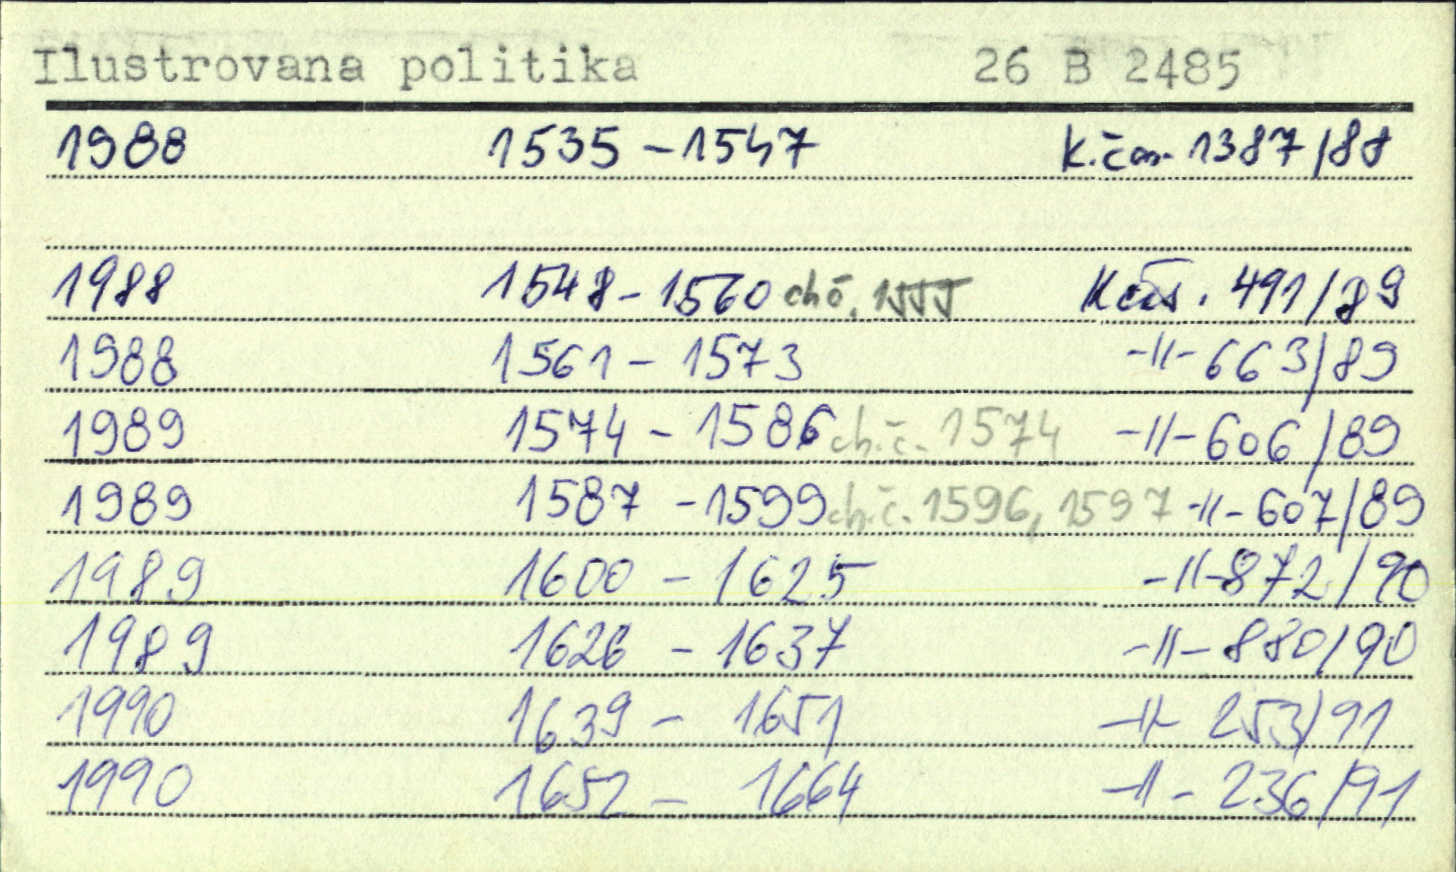 Ilustrovana politika 26 B 2485
1988 1535 - 1547 K.čas. 1387/88
1988 1548 - 1560 chč. 1555 K čas. 491/89
1988 1561 - 1573 -||- 663/89
1989 1574 - 1586 ch.č. 1574 -||- 606/89
1989 1587 - 1599 ch.č. 1596, 1597 -||- 607/89
1989 1600 - 1625 -||- 872/90
1989 1626 - 1637 -||- 880/90
1990 1639 - 1651 -||- 253/91
1990 1652 - 1664 -||- 236/91